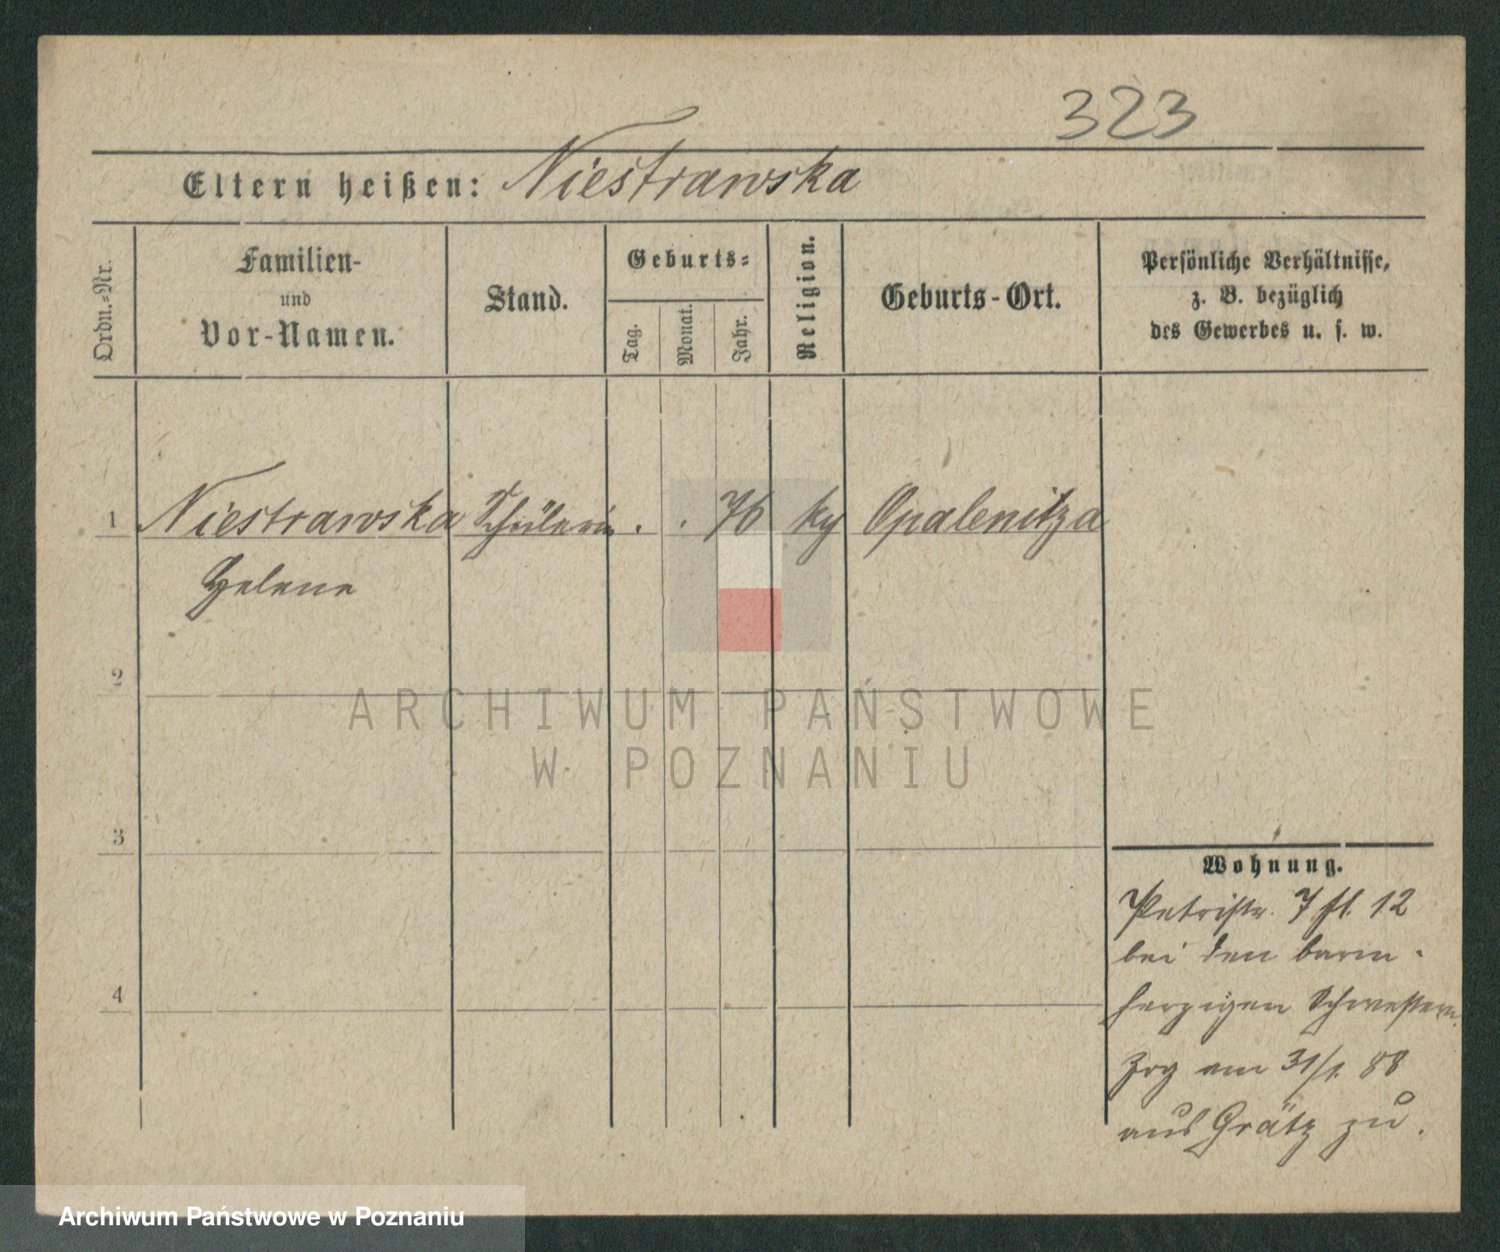 323
Eltern heißen: Niestrawska
Ordn.-Nr.
Familien-
und
Vor-Namen.
Stand.
Geburts-
Tag.
Monat.
Jahr.
Religion.
Geburts-Ort.
Persönliche Verhältnisse,
z. B. bezüglich
des Gewerbes u. s. w.
1 Niestrawska Schülerin . . 76 Opalenitza
Helene
2
ARCHIWUM PAŃSTWOWE
W POZNANIU
3
4
Wohnung.
Petristr. 7 12
bei den barm-
herzigen Schwestern.
Zog am 31/1. 88
aus Grätz zu.
Archiwum Państwowe w Poznaniu